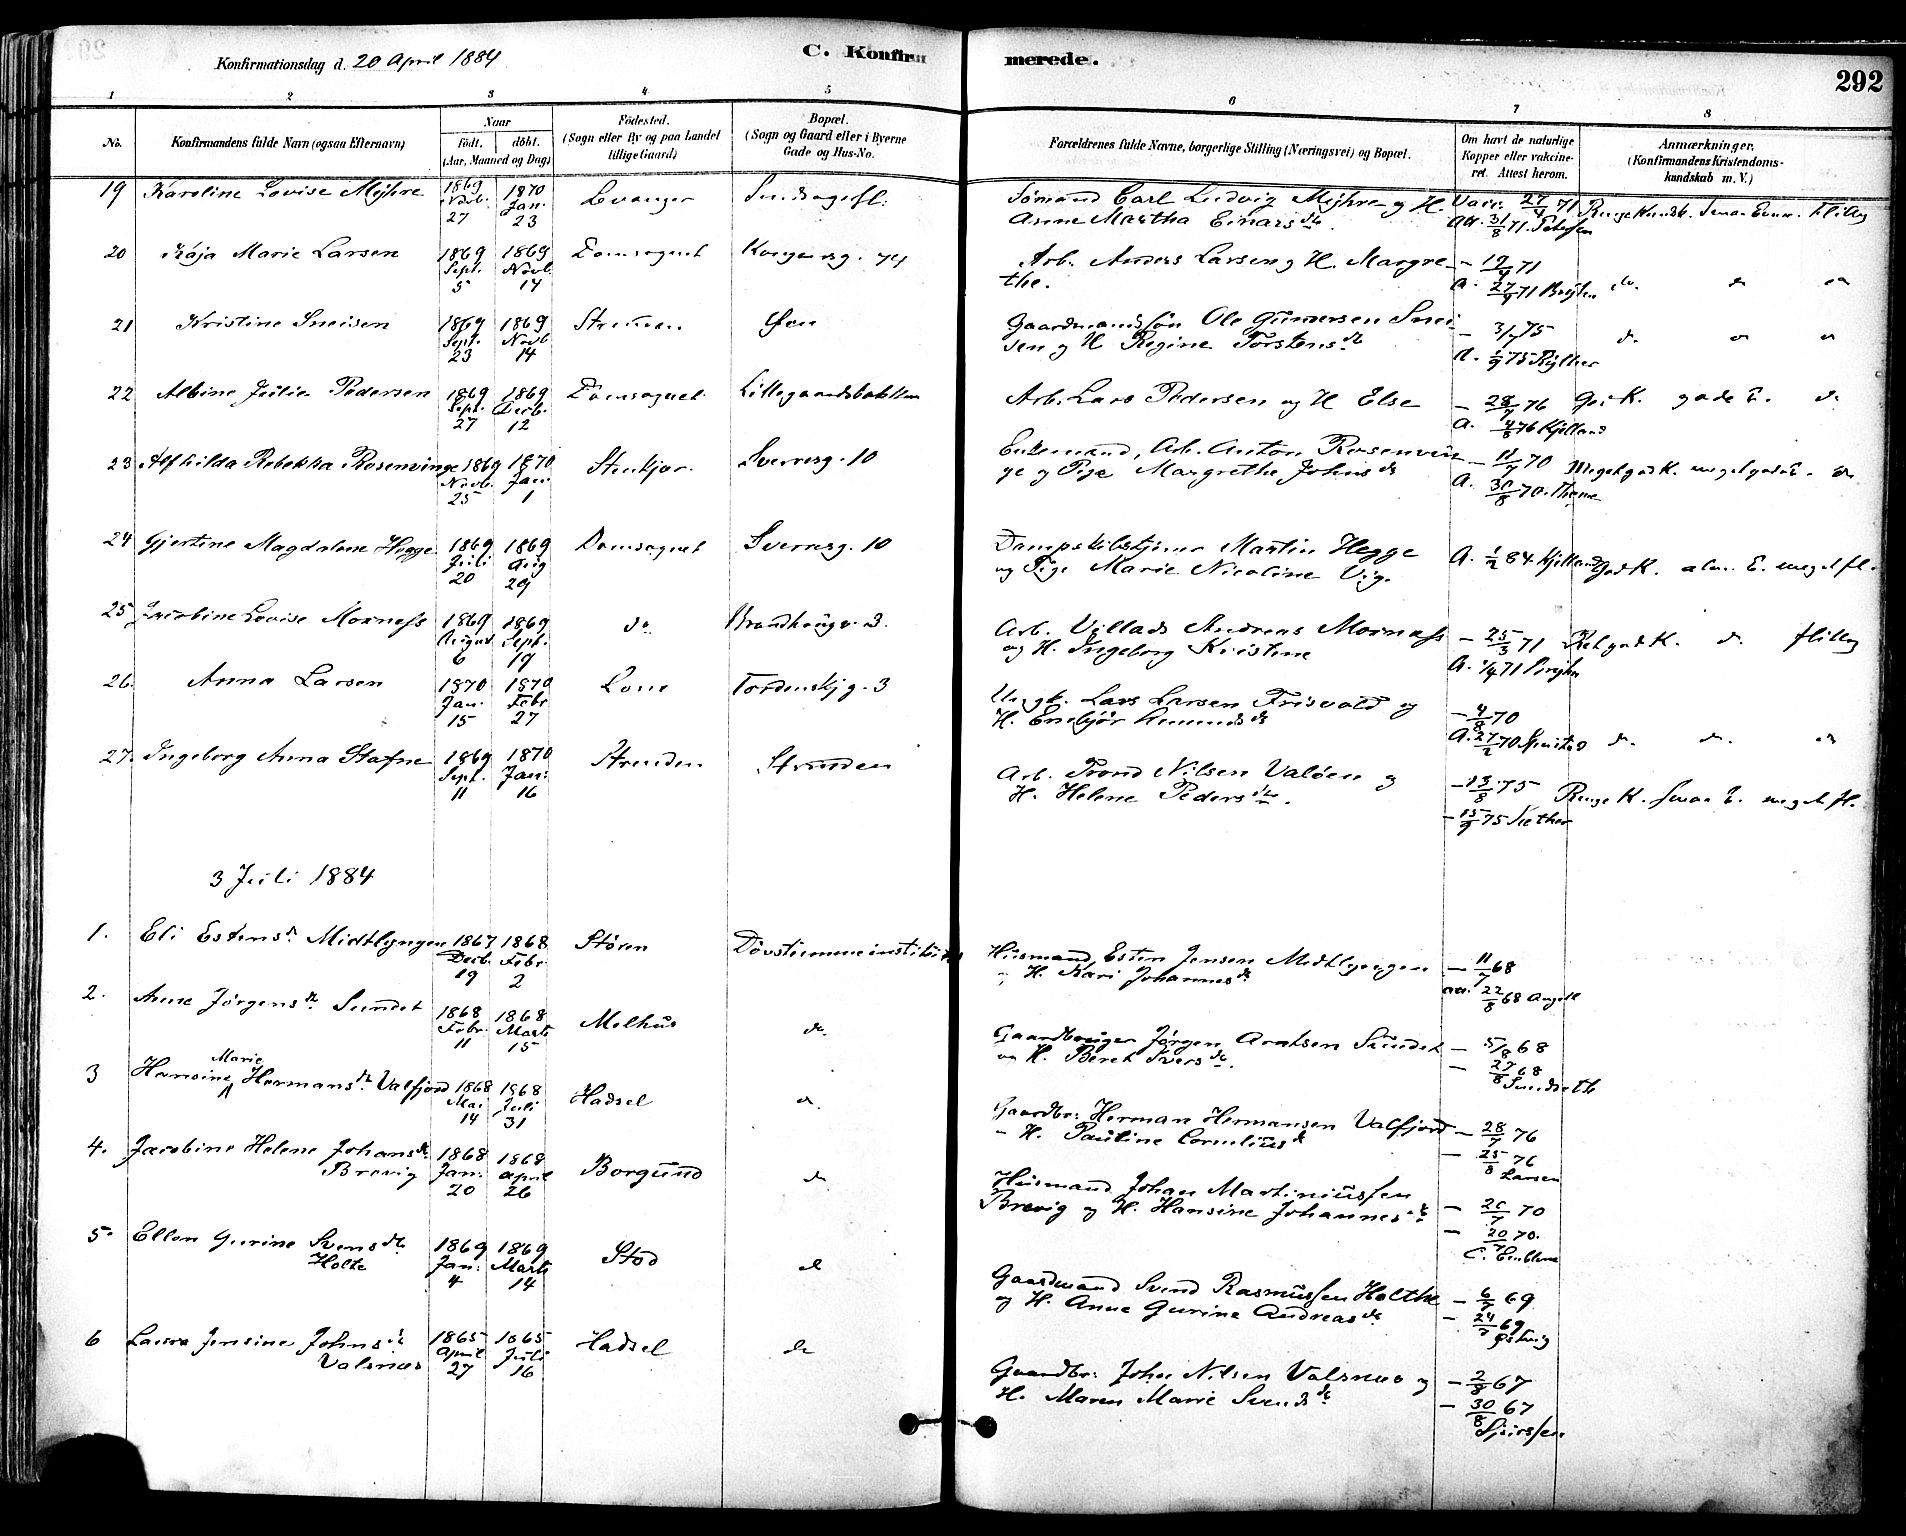 Konfirmationsdag d. 20 April 1884
C. Konfirmerede.
292
1 2 3 4 5 6 7 8
No.
Konfirmandens fulde Navn (ogsaa Efternavn)
Naar
födt. döbt.
(Aar, Maaned og Dag)
Födested.
(Sogn eller By og paa Landet
tillige Gaard)
Bopæl.
(Sogn og Gaard eller i Byerne
Gade og Hus-No.
Forældrenes fulde Navne, borgerlige Stilling (Næringsvei) og Bopæl.
Om havt de naturlige
Kopper eller vakcine-
ret. Attest herom.
Anmærkninger.
(Konfirmandens Kristendoms-
kundskab m. V.)
19 Karoline Lovise Myhre 1869 Novb. 27 1870 Jan. 23 Levanger
Sømand Carl Ludvig Myhre og H.
Anne Martha Einarsdtr.
Vacc. 27/4 71
Att. 31/8 71. Petersen
20 Kaja Marie Larsen 1869 Sept. 5 1869 Novb. 14 Domsognet Kongensg. 74
Arb. Anders Larsen og H. Margre-
the.
- 19/4 71
A. 27/4 71
do. do do
21 Kristine Sneisen 1869 Sept. 23 1869 Novb. 14 Strinden Øen
Gaardmandssøn Ole Gunnersen Snei-
sen og H Regine Torstensdr
- 3/7 75
A. 1/9 75
do do do
22 Albine Julie Pedersen 1869 Sept. 27 1869 Decb. 12 Domsognet Lillegaardsbakken
Arb. Lars Pedersen og H Else
- 28/7 76
A. 4/8 76 Kjelland
God K. gode E. do
23 Alfhilda Rebekka Rosenvinge 1869 Novb. 25 1870 Jan. 1 Stenkjær Sverresg. 10
Enkemand, Arb. Anton Rosenvin-
ge og Pige Margrethe Johnsdr
- 11/7 70
A. 30/8 70.
Meget god K. meget gode E. do
24 Gjertine Magdalene Hegge 1869 Juli 20 1869 Aug 29 Domsognet Sverresg. 10
Dampskibstjener Martin Hegge
og Pige Marie Nicoline Vig.
A. 1/2 84 Kjelland
God K. alm. E. meget fl.
25 Jacobine Lovise Mornæss 1869 August 6 1869 Sept. 19 do Brandhaugv. 3.
Arb. Villads Andreas Mornæss
og H. Ingeborg Kristine
- 25/3 71
A. 1/4 71
Ret god K. do. flittig
26. Anna Larsen 1870 Jan. 15 1870 Febr 27 Lom Tordenskj g. 3
Ungk. Lars Larsen Frisvold og
H. Embjør Amundsdr
- 4/8 70
A. 27/2 70
do. do. do
27. Ingeborg Anna Stafne 1869 Sept. 11 1870 Jan: 16 Strinden Strinden
Arb. Trond Nilsen Valøen og
H. Helene Pedersdtr.
- 13/8 75
- 15/9 75 Sæther
Ringe K. smaa E. meget fl.
3 Juli 1884
1. Eli Estensdr Midtlyngen 1867 Decb. 19 1868 Febr. 2 Støren Døvstummeinstitutet
Husmand Esten Jensen Midtlyngen
og H. Kari Johannesdr
- 11/7 68
Att. 22/8 68 Angell
2. Anne Jørgensdr Sundet 1868 Febr. 11 1868 Marts 15 Melhus do.
Gaardbruger Jørgen Arntsen Sundet
og H. Beret Iversdr.
- 5/8 68
- 27/8 68
Sundseth
3 Hansine Marie Hermansdr Valfjord 1868 Mai 14 1868 Juli 31 Hadsel do.
Gaardbr: Herman Hermansen Valfjord
- H. Pauline Corneliusdr
- 28/7 76
- 25/8 76
Larsen
4. Jacobine Helene Johansdr
Brevig 1868 Jan: 20 1868 April 26 Borgund do
Husmand Johan Martiniussen
Brevig og H. Hansine Johannesdr
- 20/7 70
- 20/7 70.
5. Ellen Gurine Svensdtr
Holte 1869 Jan: 4 1869 Marts 14 Stod do
Gaardmand Svend Rasmussen Holthe
og H. Anne Gurine Andreasdr
- 6/7 69
- 24/7 69
6 Laura Jensine Johnsdr
Valsnæs 1865 April 27 1865 Juli 16 Hadsel do
Gaardbr: John Nilsen Valsnæs og
H. Maren Marie Svendsdr.
- 2/8 67
- 30/8 67